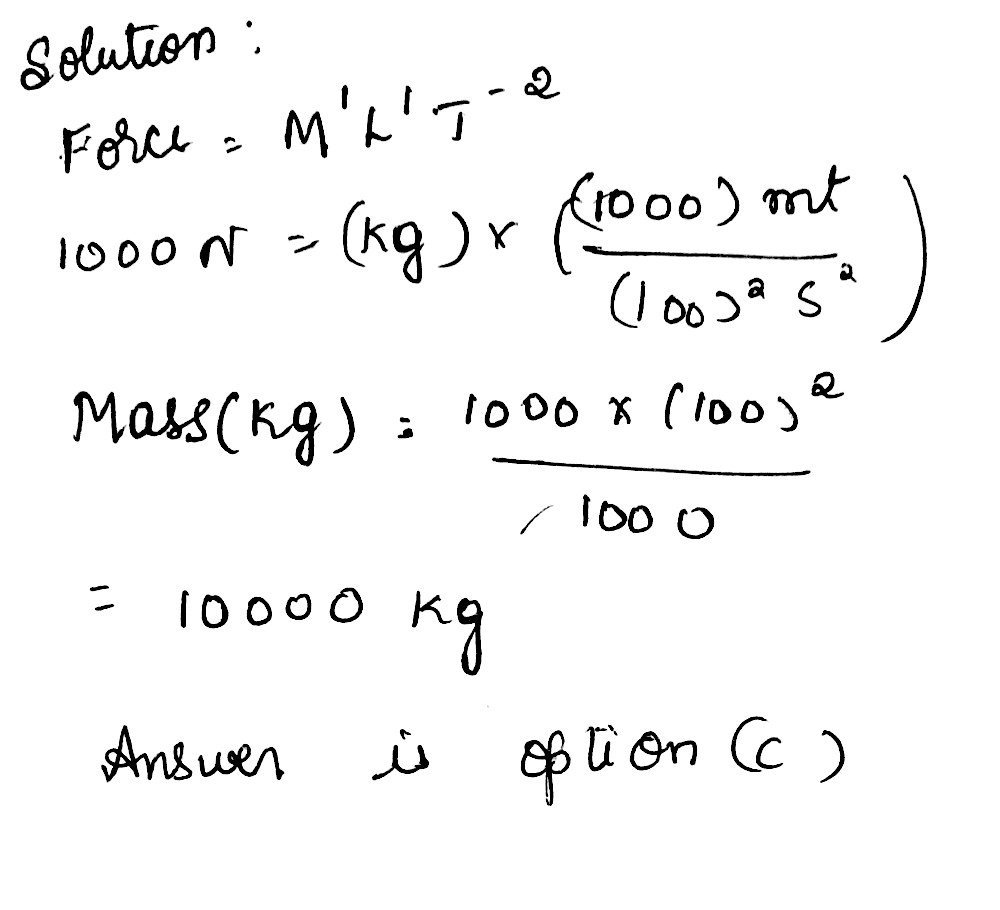 Solution :
Force = M¹L¹T⁻²
1000 N = (kg) x ((1000) mt / (100)² s²)
Mass(kg) = 1000 x (100)² / 1000
= 10000 kg
Answer is option (c)